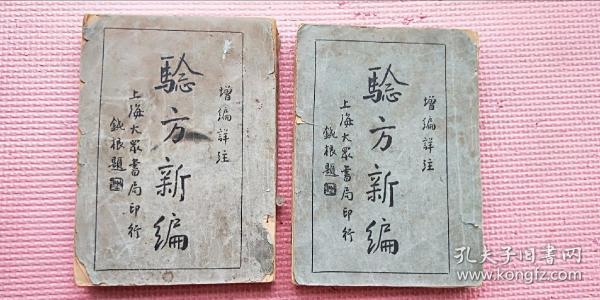 增編詳注
騐方新編
上海大衆書局印行
鈍根題
增編詳注
騐方新編
上海大衆書局印行
鈍根題
孔夫子旧书网
www.kongfz.com